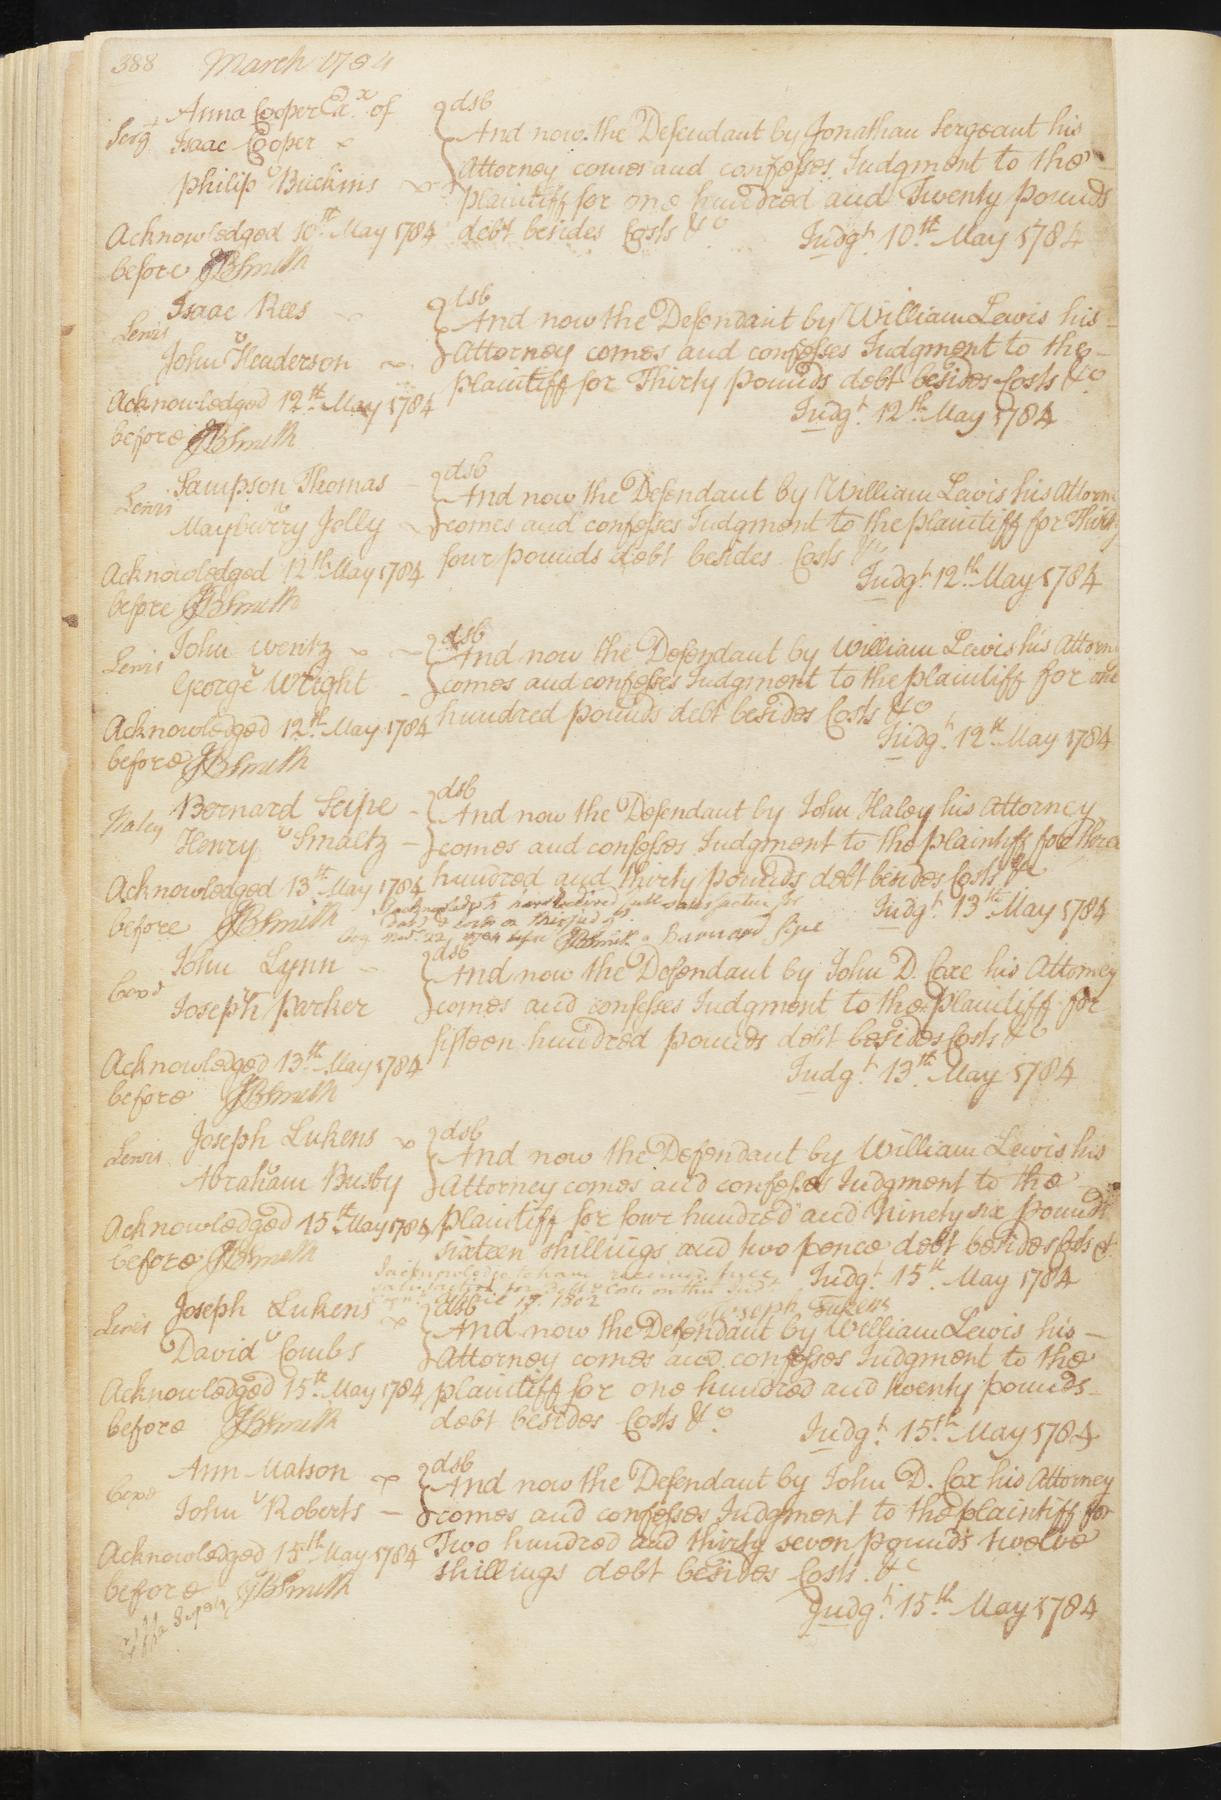 388 March 1784
Serg.t Anna Cooper Ex.x of
Isaac Cooper
v
Philip Buckins
Acknowledged 10th May 1784
before JBSmith
dsb
And now the Defendant by Jonathan Sergeant his
Attorney comes and confesses Judgment to the
plaintiff for one hundred and Twenty pounds
debt besides Costs &c
Judgt. 10th May 1784
Lewis Isaac Rees
v
John Henderson
Acknowledged 12th May 1784
before JBSmith
dsb
And now the Defendant by William Lewis his
Attorney comes and confesses Judgment to the
plaintiff for Thirty pounds debt besides Costs &c
Judgt. 12th May 1784
Lewis Sampson Thomas
v
Mayberry Jolly
Acknowledged 12th May 1784
before JBSmith
dsb
And now the Defendant by William Lewis his Attorn
comes and confesses Judgment to the plaintiff for Thirty
four pounds debt besides Costs &c
Judgt. 12th May 1784
Lewis John Wentz
v
George Wright
Acknowledged 12th May 1784
before JBSmith
dsb
And now the Defendant by William Lewis his Attorn
comes and confesses Judgment to the plaintiff for one
hundred pounds debt besides Costs &c
Judgt. 12th May 1784
Haley Bernard Seipe
v
Henry Smaltz
Acknowledged 13th May 1784
before JBSmith
dsb
And now the Defendant by John Haley his Attorney
comes and confesses Judgment to the plaintiff for three
hundred and thirty pounds debt besides Costs &c
Judgt. 13th May 1784
I acknowledge to have received full satisfaction for
Debt & costs on this Judgt.
22 1784 before JBSmith Barnard Sipe
Coxe John Lynn
v
Joseph Parker
Acknowledged 13th May 1784
before JBSmith
dsb
And now the Defendant by John D. Coxe his Attorney
comes and confesses Judgment to the plaintiff for
fifteen hundred pounds debt besides Costs &c
Judgt. 13th May 1784
Lewis Joseph Lukens
v
Abraham Busby
Acknowledged 15th May 1784
before JBSmith
dsb
And now the Defendant by William Lewis his
Attorney comes and confesses Judgment to the
plaintiff for four hundred and ninety six pounds
sixteen shillings and two pence debt besides Costs &
Judgt. 15th May 1784
I acknowledge to have received full
satisfaction for debt & costs on this Judgt.
April 17. 1802
Joseph Lukens
Lewis Joseph Lukens
v
David Combs
Acknowledged 15th May 1784
before JBSmith
dsb
And now the Defendant by William Lewis his
Attorney comes and confesses Judgment to the
plaintiff for one hundred and twenty pounds
debt besides Costs &c
Judgt. 15th May 1784
Coxe Ann Matson
v
John Roberts
Acknowledged 15th May 1784
before JBSmith
dsb
And now the Defendant by John D. Cox his Attorney
comes and confesses Judgment to the plaintiff for
Two hundred and thirty seven pounds twelve
shillings debt besides Costs. &c
Judgt. 15th May 1784